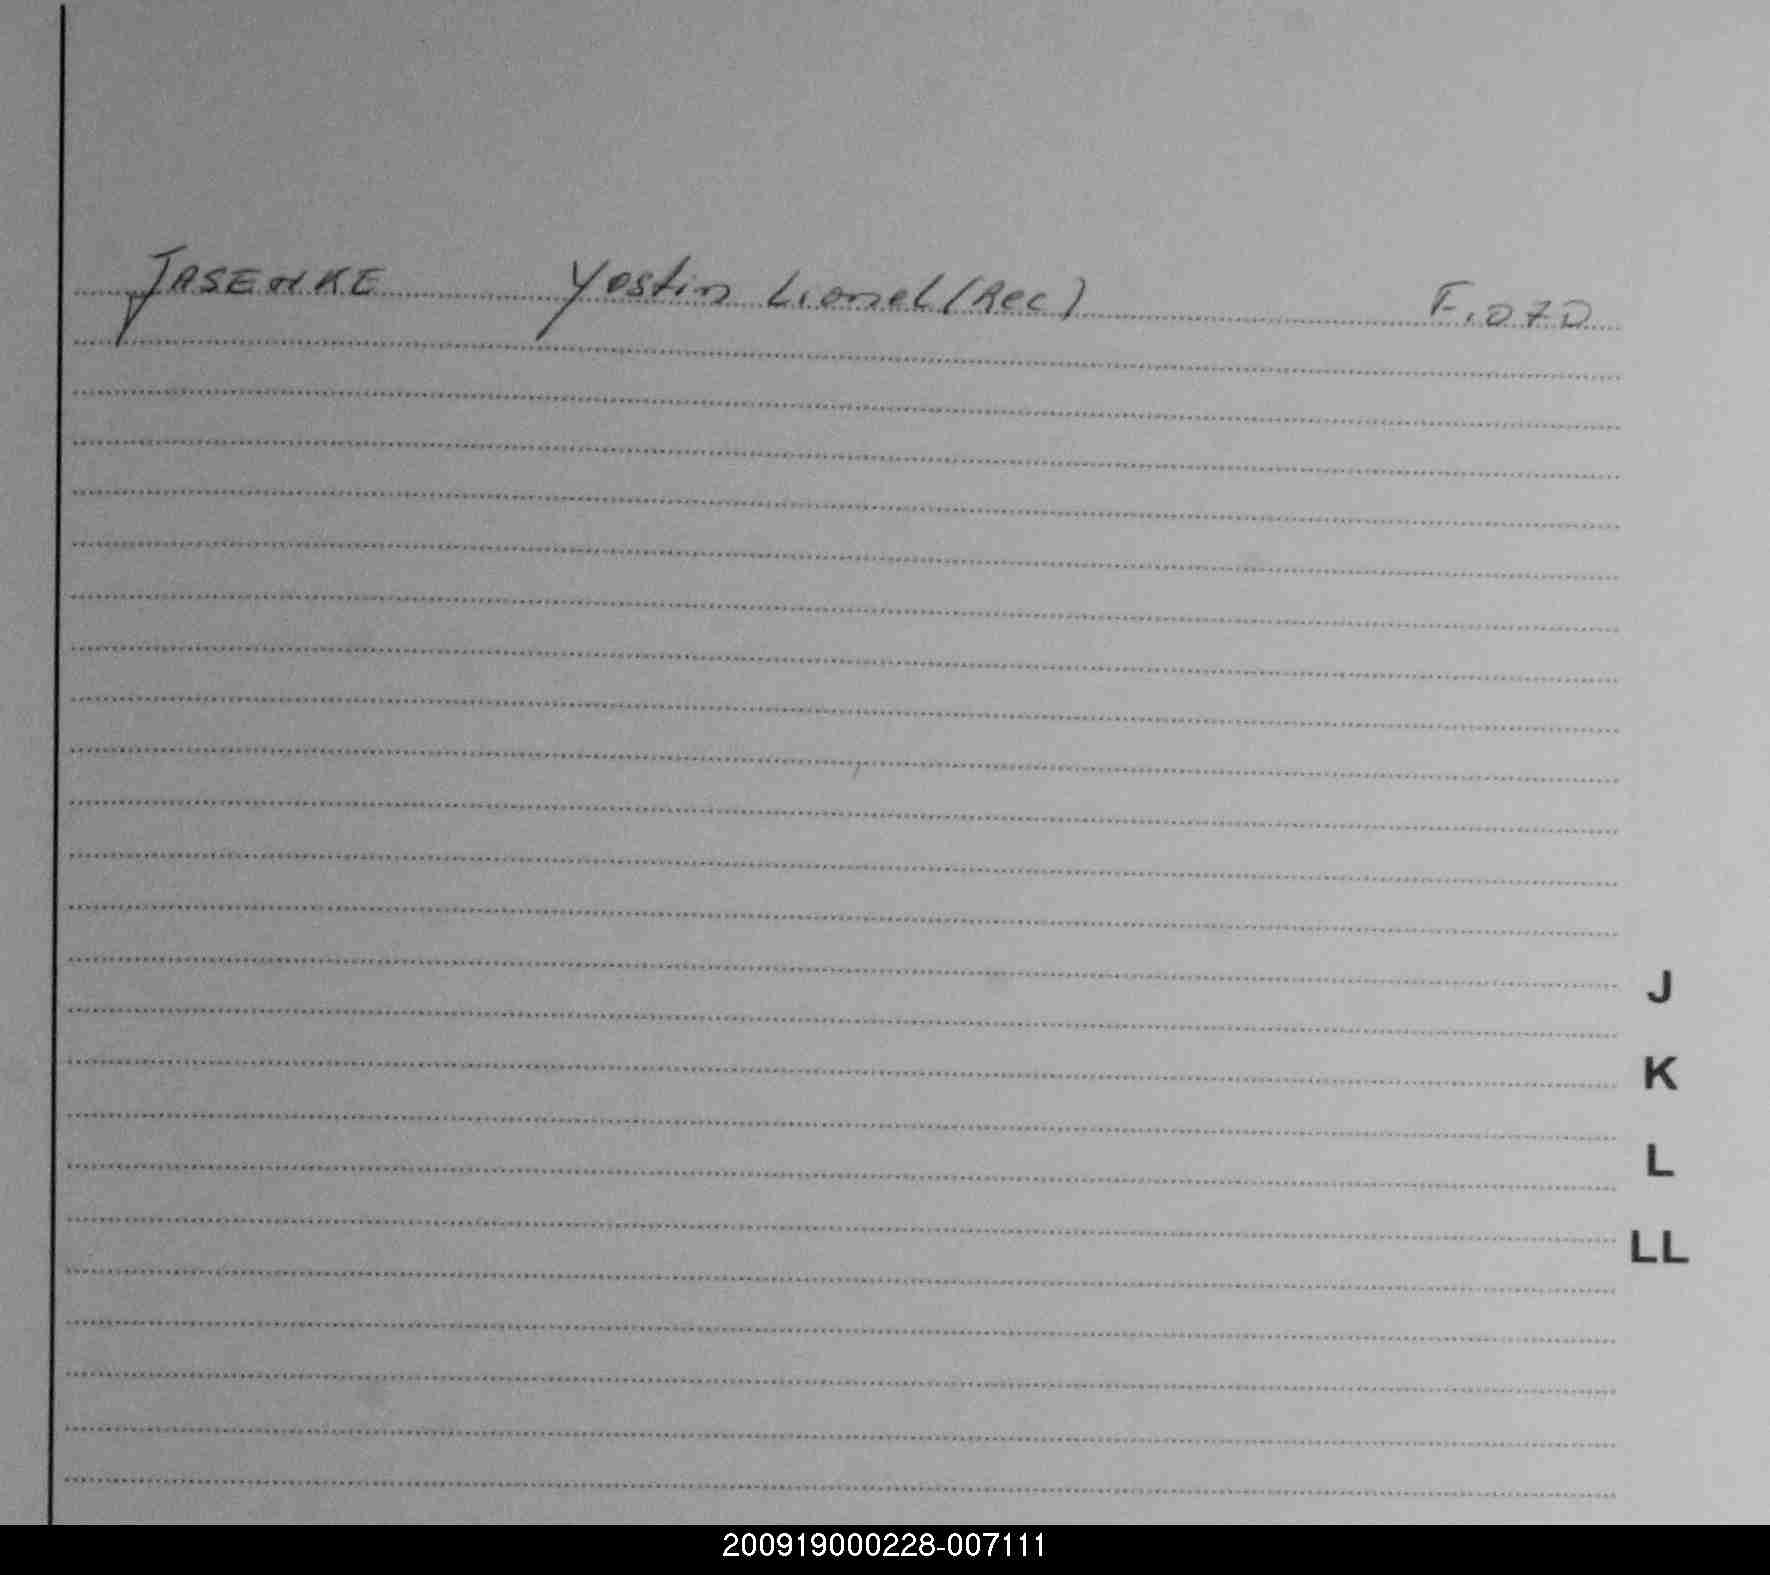 JASENKE Yostin Lionel (Rec) F. 070
J
K
L
LL
200919000228-007111